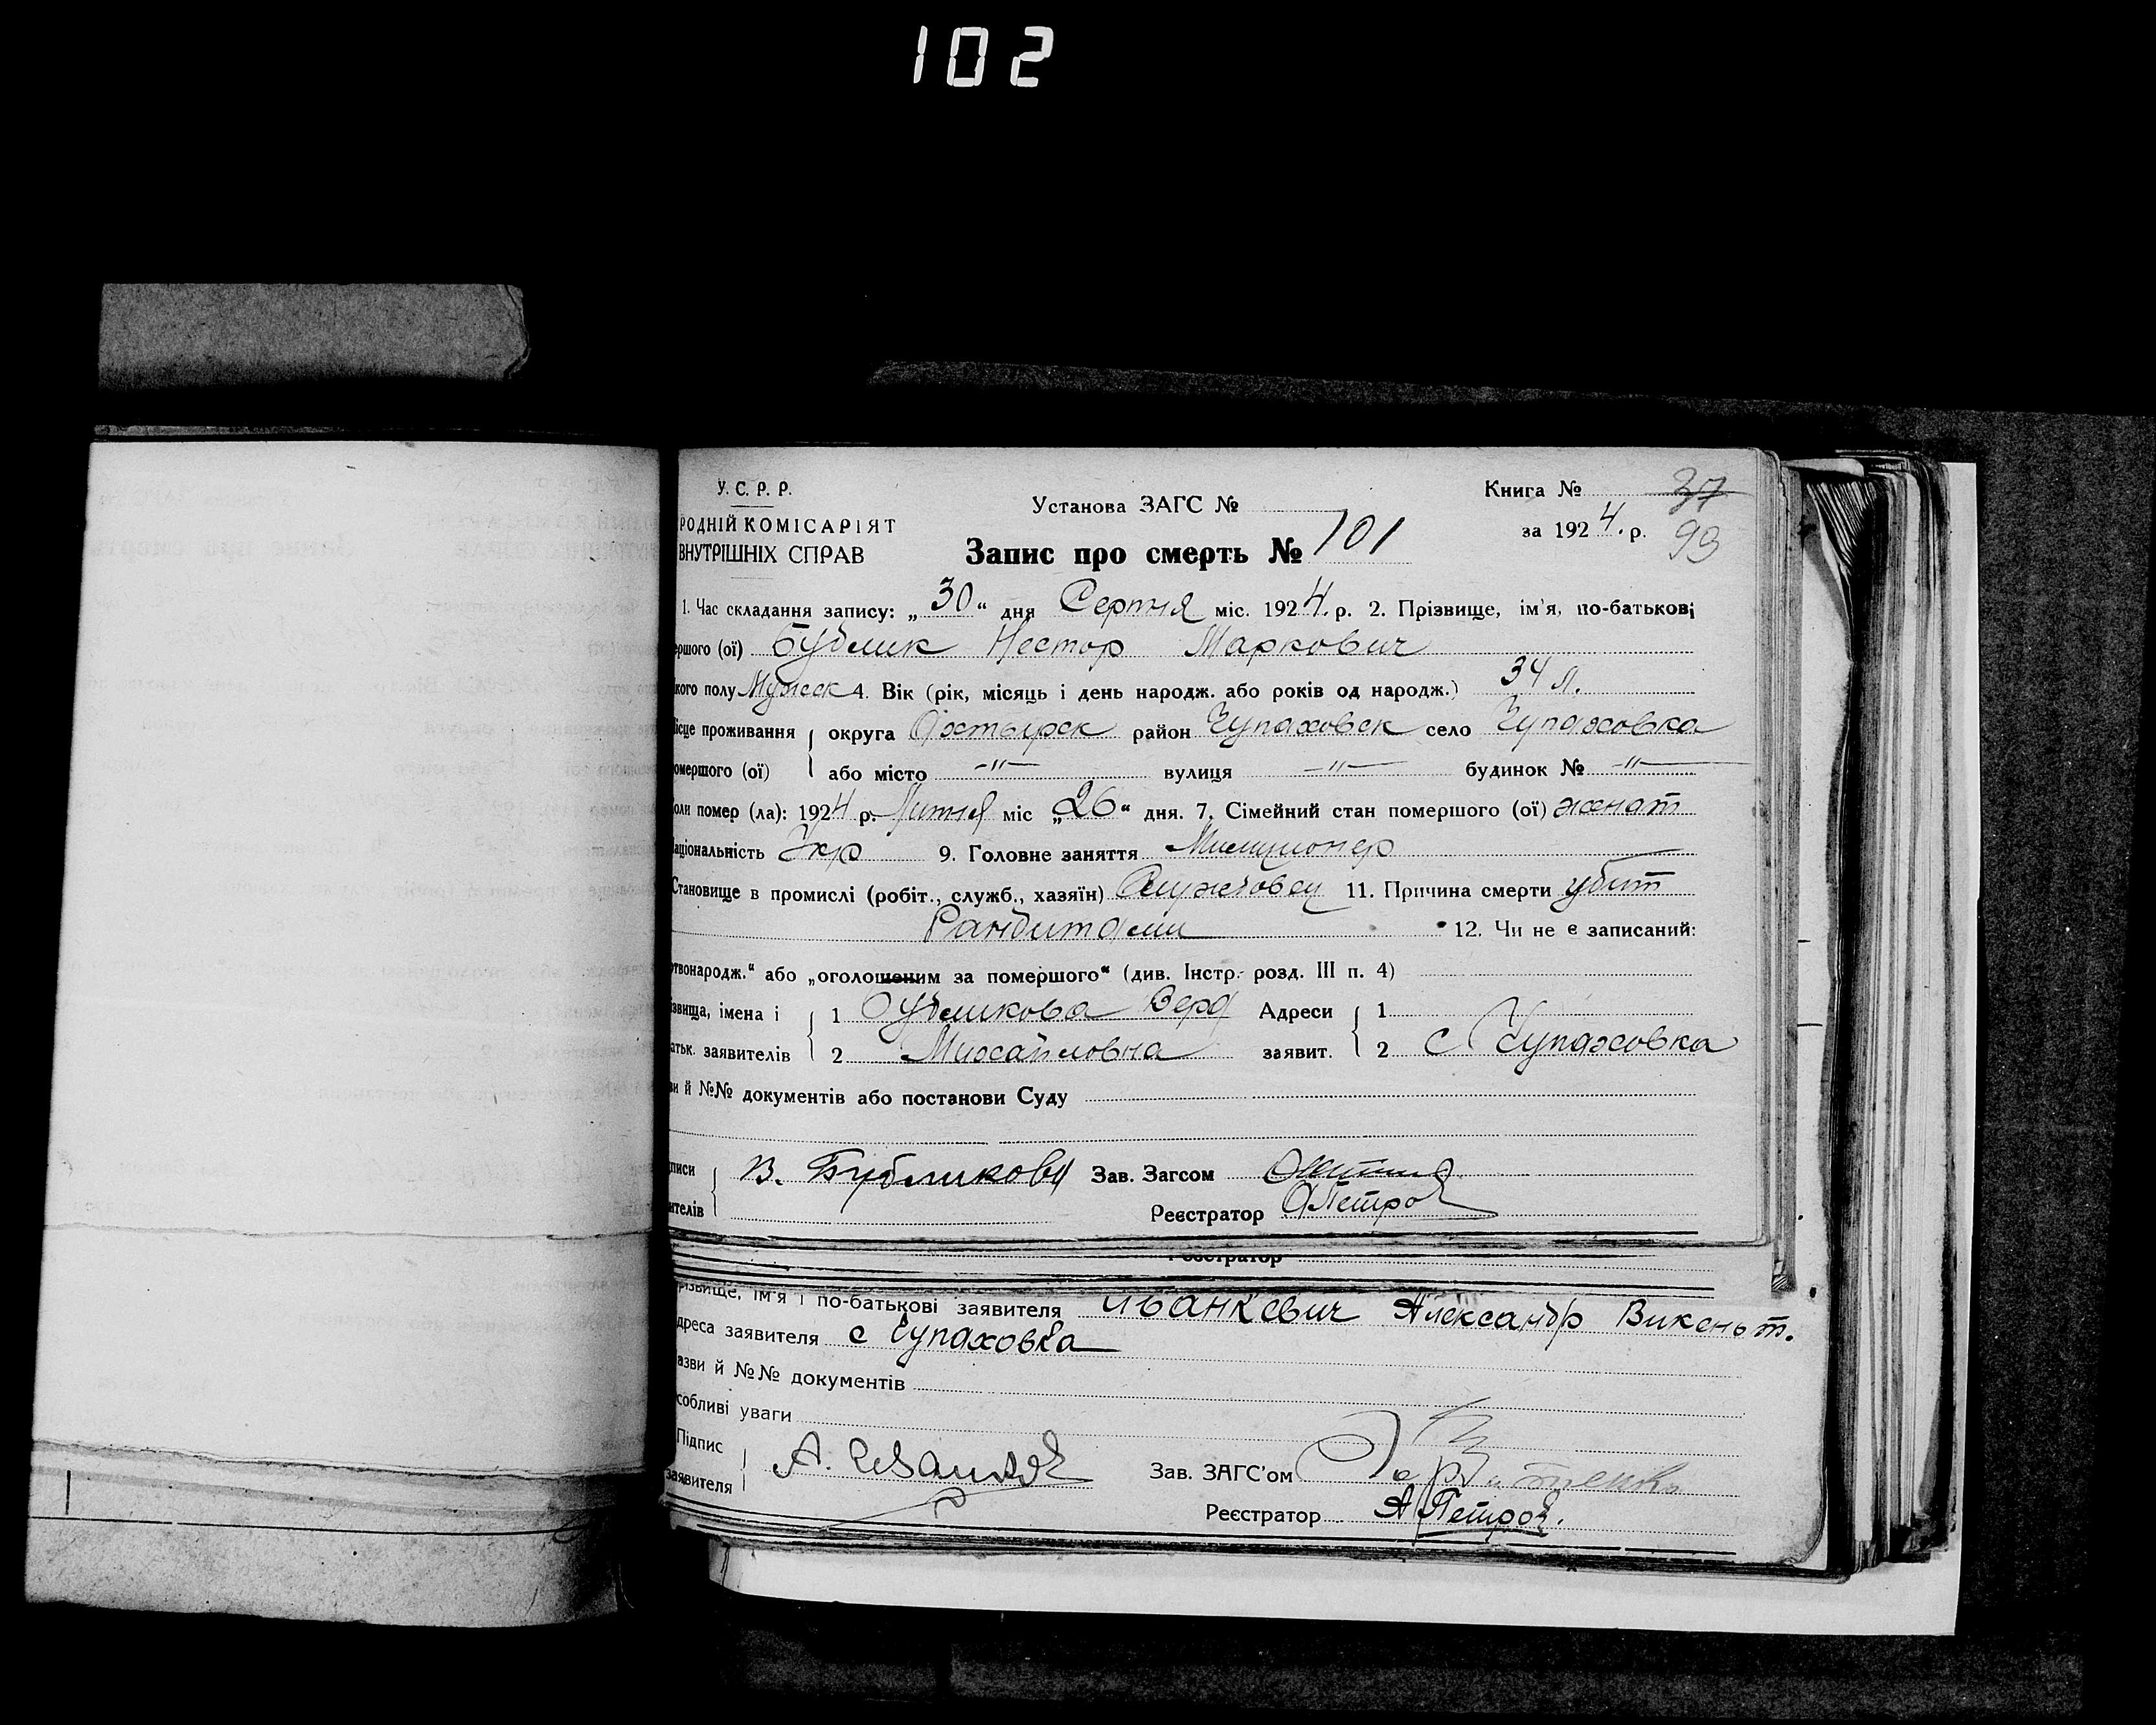 102
У. С. Р. Р.
РОДНІЙ КОМІСАРІЯТ
ВНУТРІШНІХ СПРАВ
Установа ЗАГС №
Запис про смерть № 101
Книга № 37
за 1924. р. 99
1. Час складання запису: „30“ дня Серпня міс. 1924. р. 2. Прізвище, ім'я, по-батькові
ершого (ої) Бублик Нестор Маркович
кого полу Мужск 4. Вік (рік, місяць і день народж. або років од народж.) 34 л.
ісце проживання округа Охтырск район Чупаховск село Чупаховка
омершого (ої) або місто -"- вулиця -"- будинок № -"-
оли помер (ла): 1924 р. Липня міс „26“ дня. 7. Сімейний стан помершого (ої) женат
аціональність Укр 9. Головне заняття Милиционер
Становище в промислі (робіт., служб., хазяїн) 11. Причина смерти убит
бандитами 12. Чи не є записаний:
ртвонародж.“ або „оголошеним за помершого“ (див. Інстр. розд. III п. 4)
ізвища, імена і 1 Бубликова Вера Адреси 1
атьк. заявителів 2 Михайловна заявит. 2 с Чупаховка
ви й №№ документів або постанови Суду
дписи В. Бубликова Зав. Загсом
ителів Реєстратор АПетров
Реєстратор
різвище, ім'я і по-батькові заявителя Иванкевич Александр Викеньт.
дреса заявителя с Чупаховка
азви й №№ документів
собливі уваги
Підпис А. Иванкев
заявителя
Зав. ЗАГС'ом
Реєстратор А Петров.